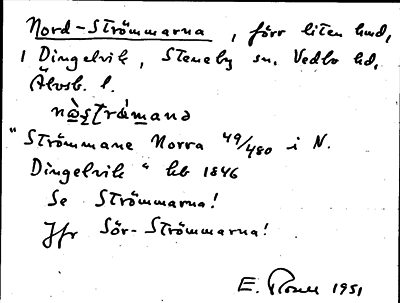 Nord-Strömmarna, förr liten lund,
i Dingelvik, Steneby sn. Vedbo hd,
Älvsb. l.
"Strömmane Norra 49/480 i N.
Dingelvik" hb 1846
Se Strömmarna!
Jfr Sör-Strömmarna!
E. 1951